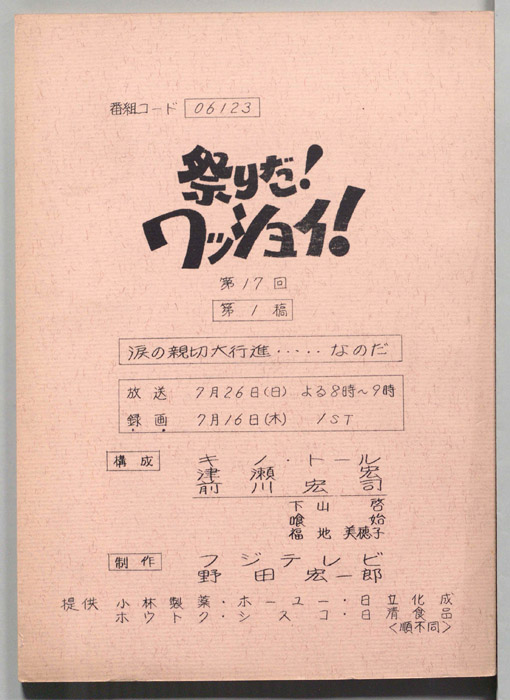 番組コード 06123
祭りだ!
ワッショイ!
第17回
第1稿
涙の親切大行進‥‥‥なのだ
放送 7月26日(日) よる8時~9時
録画 7月16日(木) 1ST
構成 キノ・トール
津瀬宏
前川宏司
下山啓
喰始
福地美穂子
制作 フジテレビ
野田宏一郎
提供 小林製薬・ホーユー・日立化成
ホウトク・シスコ・日清食品
<順不同>